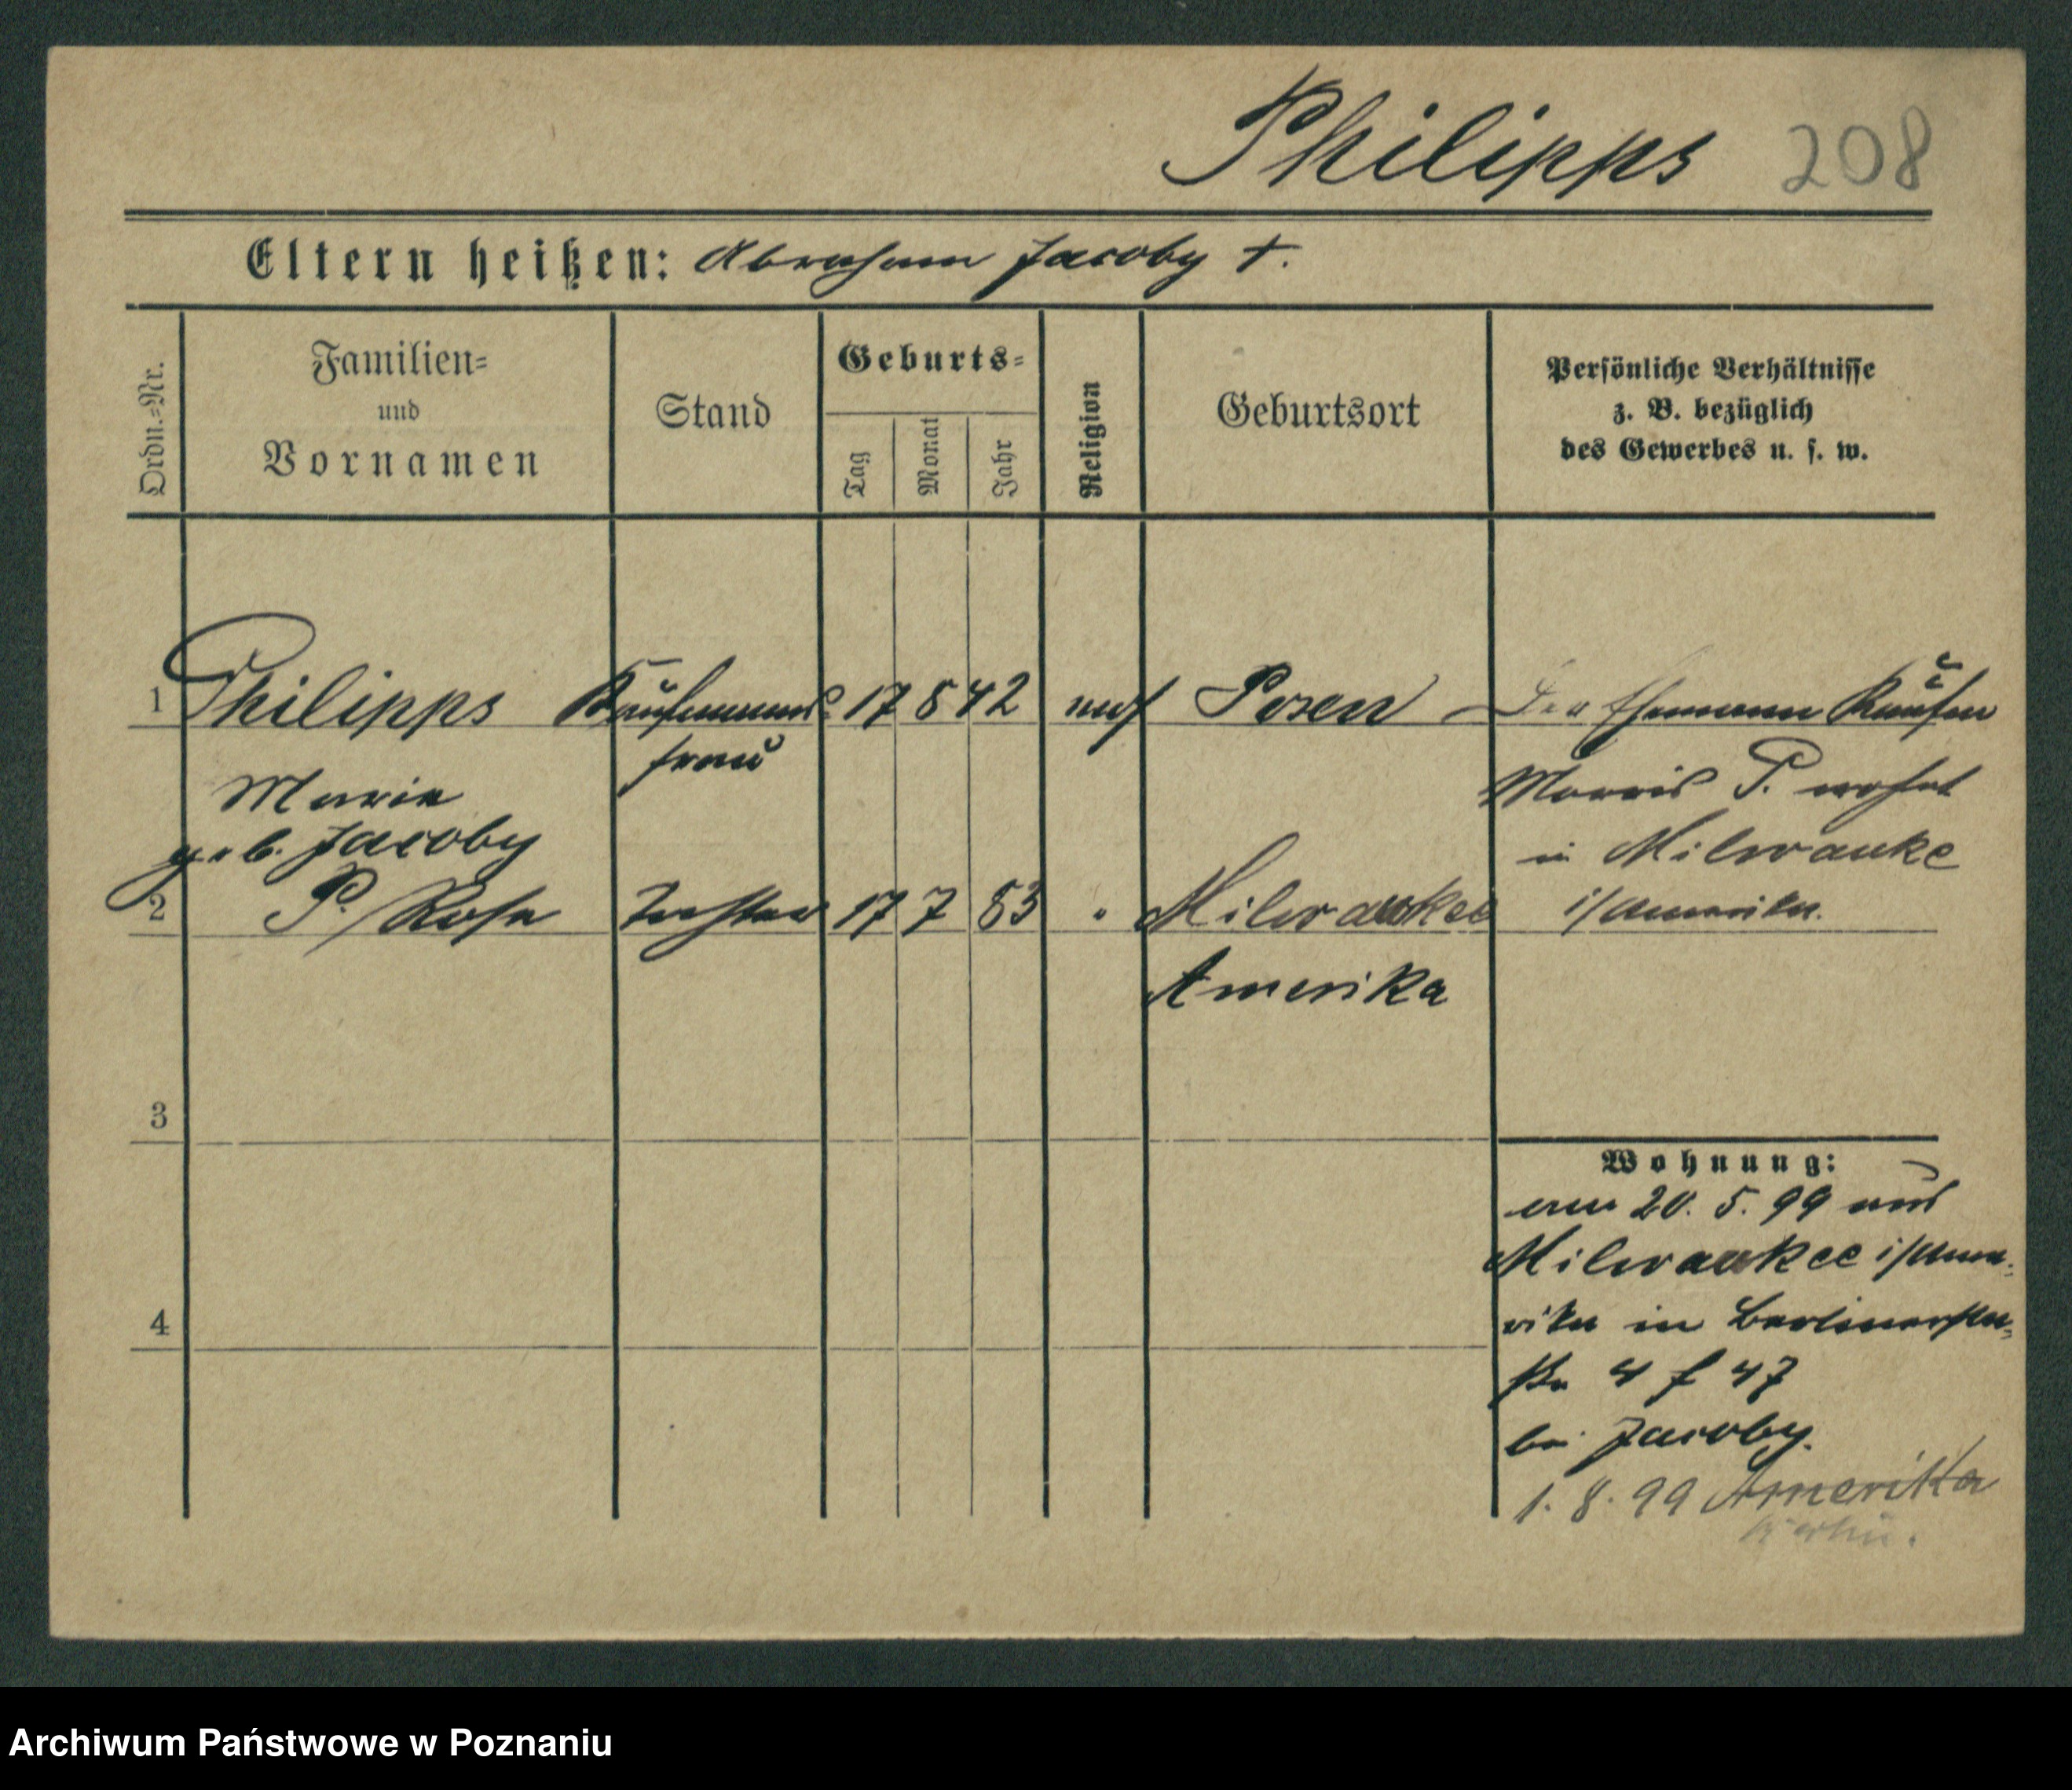 Philipps 208
Eltern heißen: Abraham Jacoby †.
Ordn.=Nr.
Familien=
und
Vornamen
Stand
Geburts=
Tag
Monat
Jahr
Religion
Geburtsort
Persönliche Verhältnisse
z. B. bezüglich
des Gewerbes u. s. w.
1 Philipps Kaufmanns 17 8 42 mos Posen Der Ehemann Kaufm
frau
Marie
geb. Jacoby
Morris P. wohnt
in Milwauke
i/Amerika.
2 P. Rosa Tochter 17 7 83 " Milwaukee
Amerika
3
4
Wohnung:
20. 5. 99 aus
Milwaukee i/Ame-
rika in Berlinerstra-
ße 4 f 47
bei Jacoby.
1. 8. 99 Amerika
Archiwum Państwowe w Poznaniu